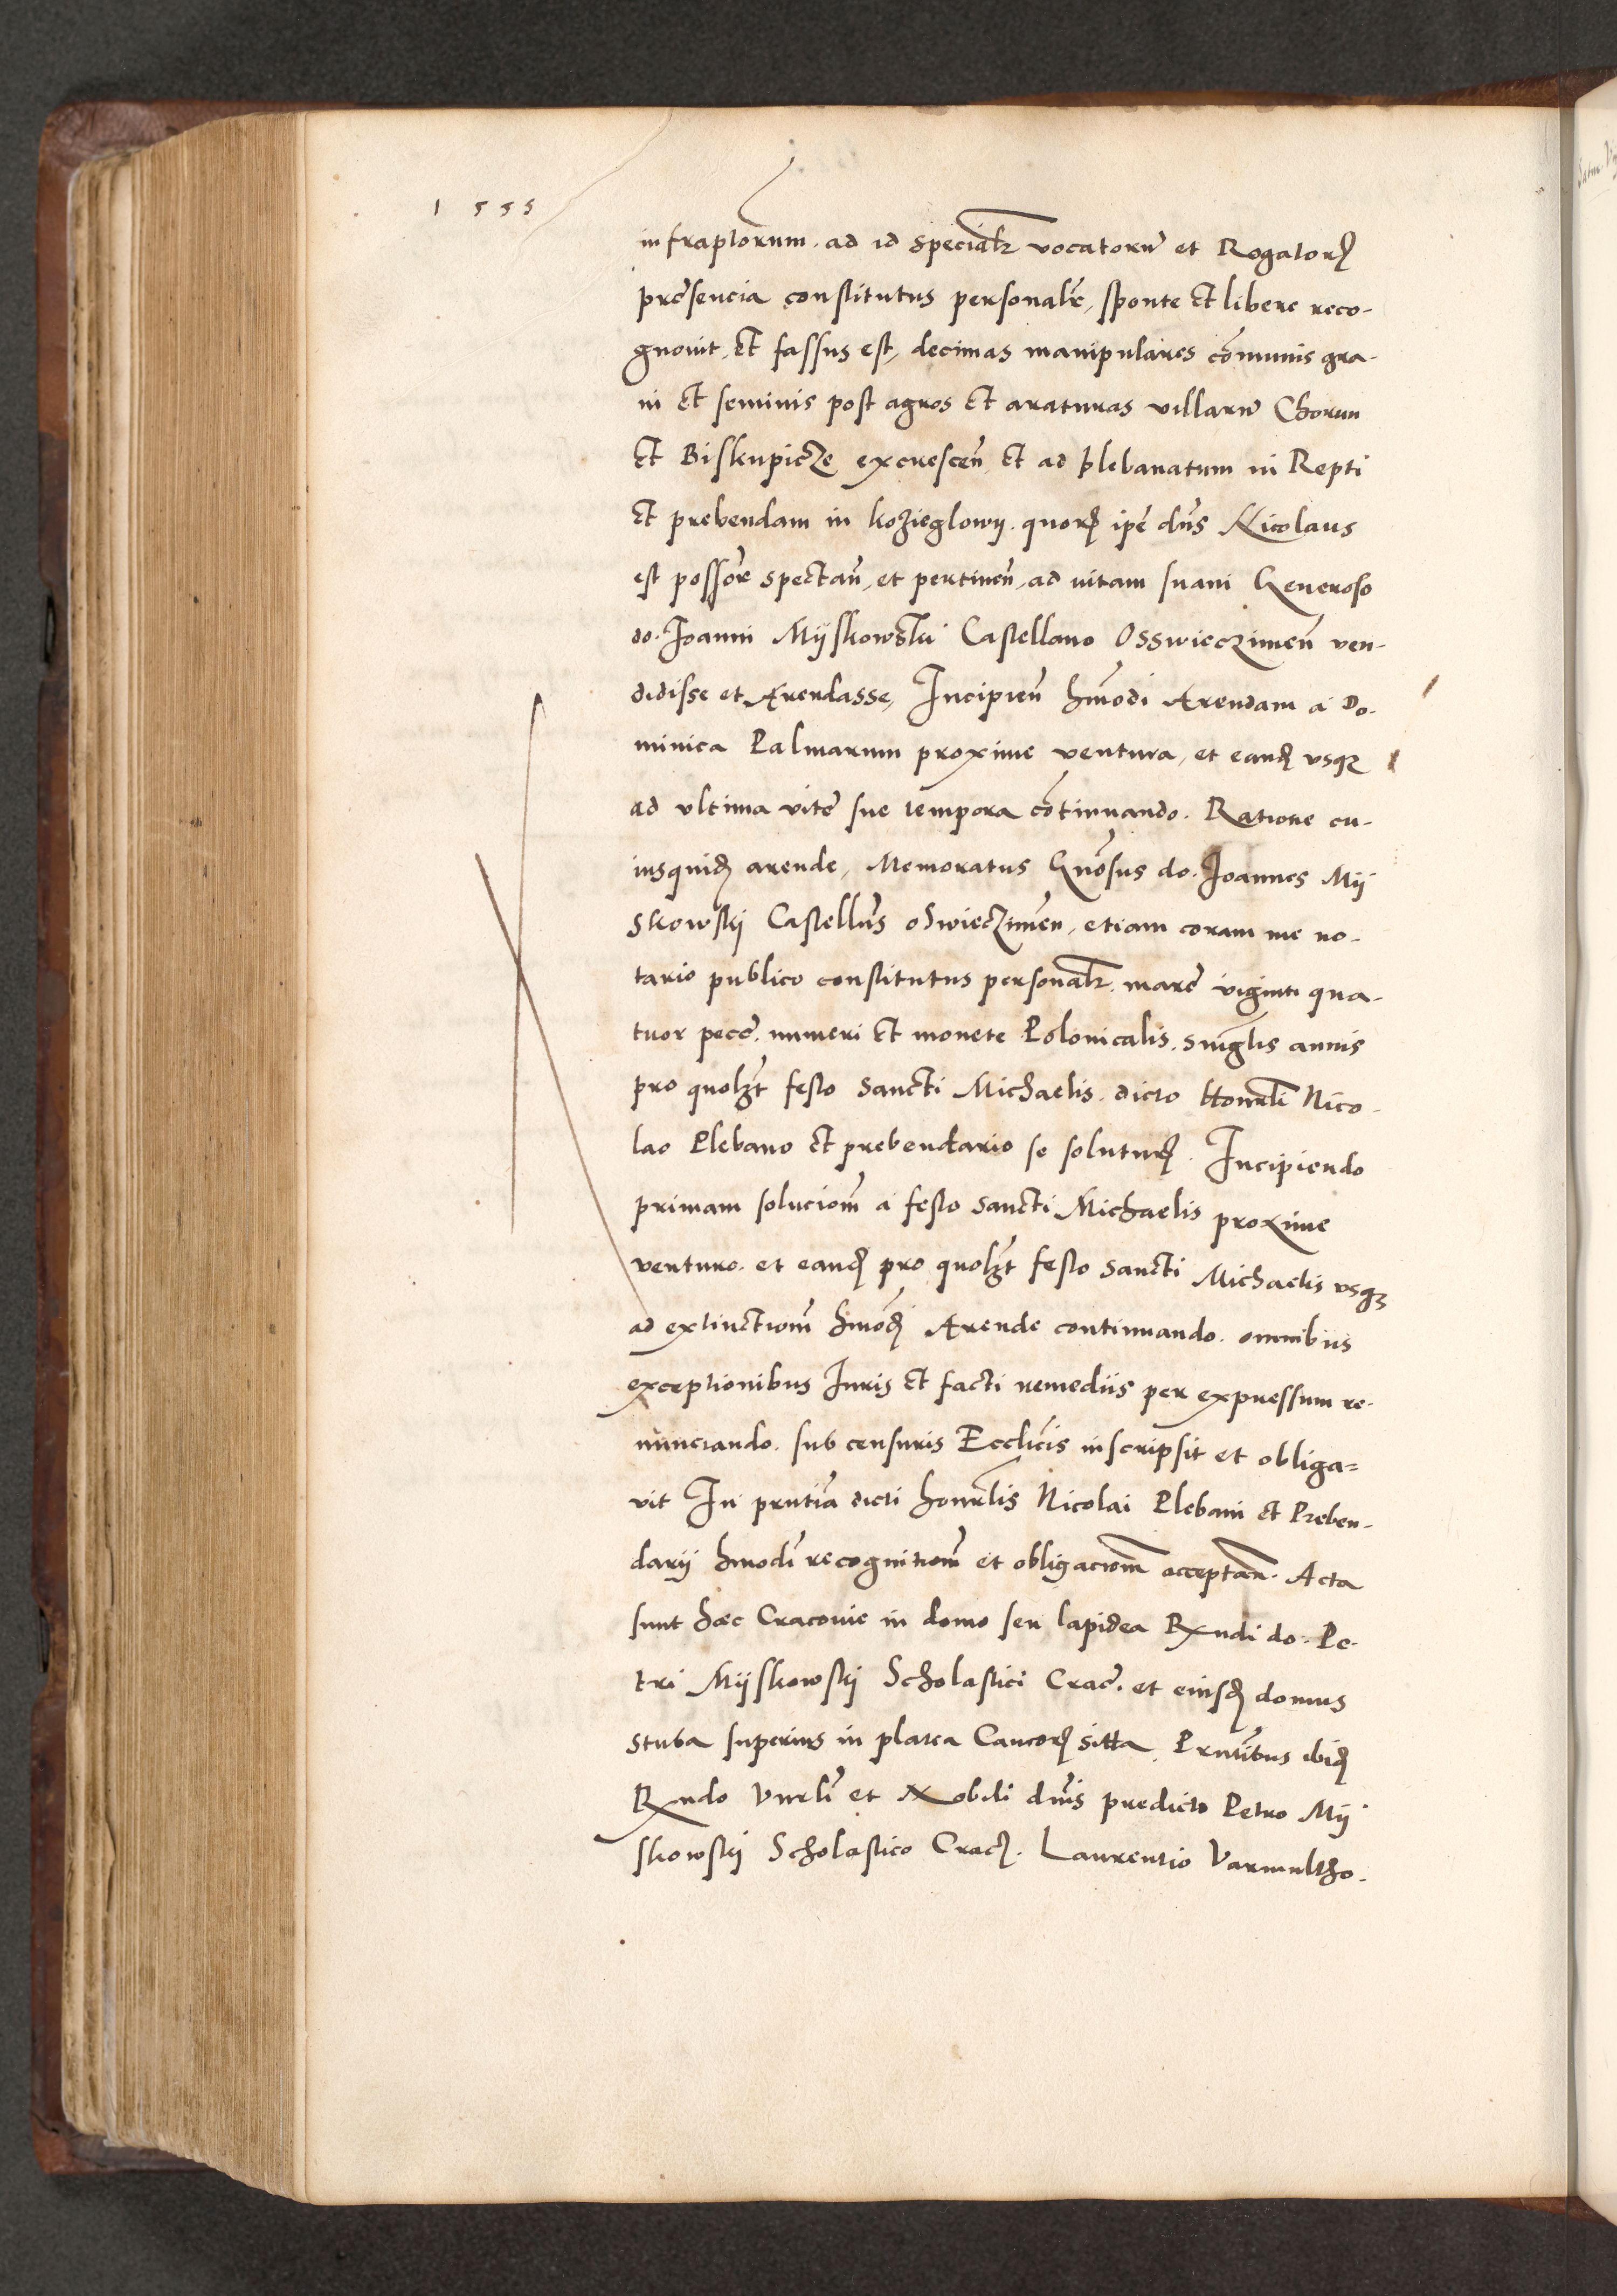 1555
infraptorum. ad id specialr vocatorum et Rogatorum
presencia constitutus personalr, sponte et libere reco-
gnovit, et fassus est, decimas manipulares communis gra-
ni et seminis post agros et araturas villarum Chorun
et Biskupicze excrescen. et ad plebanatum in Repti
et prebendam in kozieglowy. quorum ipe dns Nicolaus
est possor spectan, et pertinen, ad vitam suam Generoso
do. Joanni Myskowski Castellano Osswieczimen ven-
didisse et Arendasse, Incipien hmodi Arendam a Do-
minica Palmarum proxime ventura, et eand usque
ad ultima vite sue tempora continuando. Ratione cu-
iusquid arende, Memoratus Gnosus do. Joannes My
skowski Castellus oswieczimen, etiam coram me no-
tario publico constitutus personalr. marc viginti qua-
tuor pecc. numeri et monete Polonicalis. singlis annis
pro quolzt festo Sancti Michaelis. dicto Honrli Nico-
lao Plebano et prebendario se soluturum. Incipiendo
primam solucionm a festo Sancti Michaelis proxime
venturo. et eand pro quolzt festo Sancti Michaelis usque
ad extinctionm hmodi Arende continuando. omnibus
exceptionibus Juris et facti remediis per expressum re-
nunciando. sub censuris Ecclicis inscripsit et obliga=
vit In prntia dicti honrlis Nicolai Plebani et Preben-
darii hmodi recognitionm et obligacionm acceptan. Acta
sunt hec Cracovie in domo seu lapidea Rxndi do. Pe-
tri Myskowski Scholastici Crac. et eiusd domus
stuba superius in platea Canoorum sitta. Prntibus ibid
Rxndo Vnrli et Nobili dnis predicto Petro My
skowski Scholastico Crac. Laurentio Varmultho-